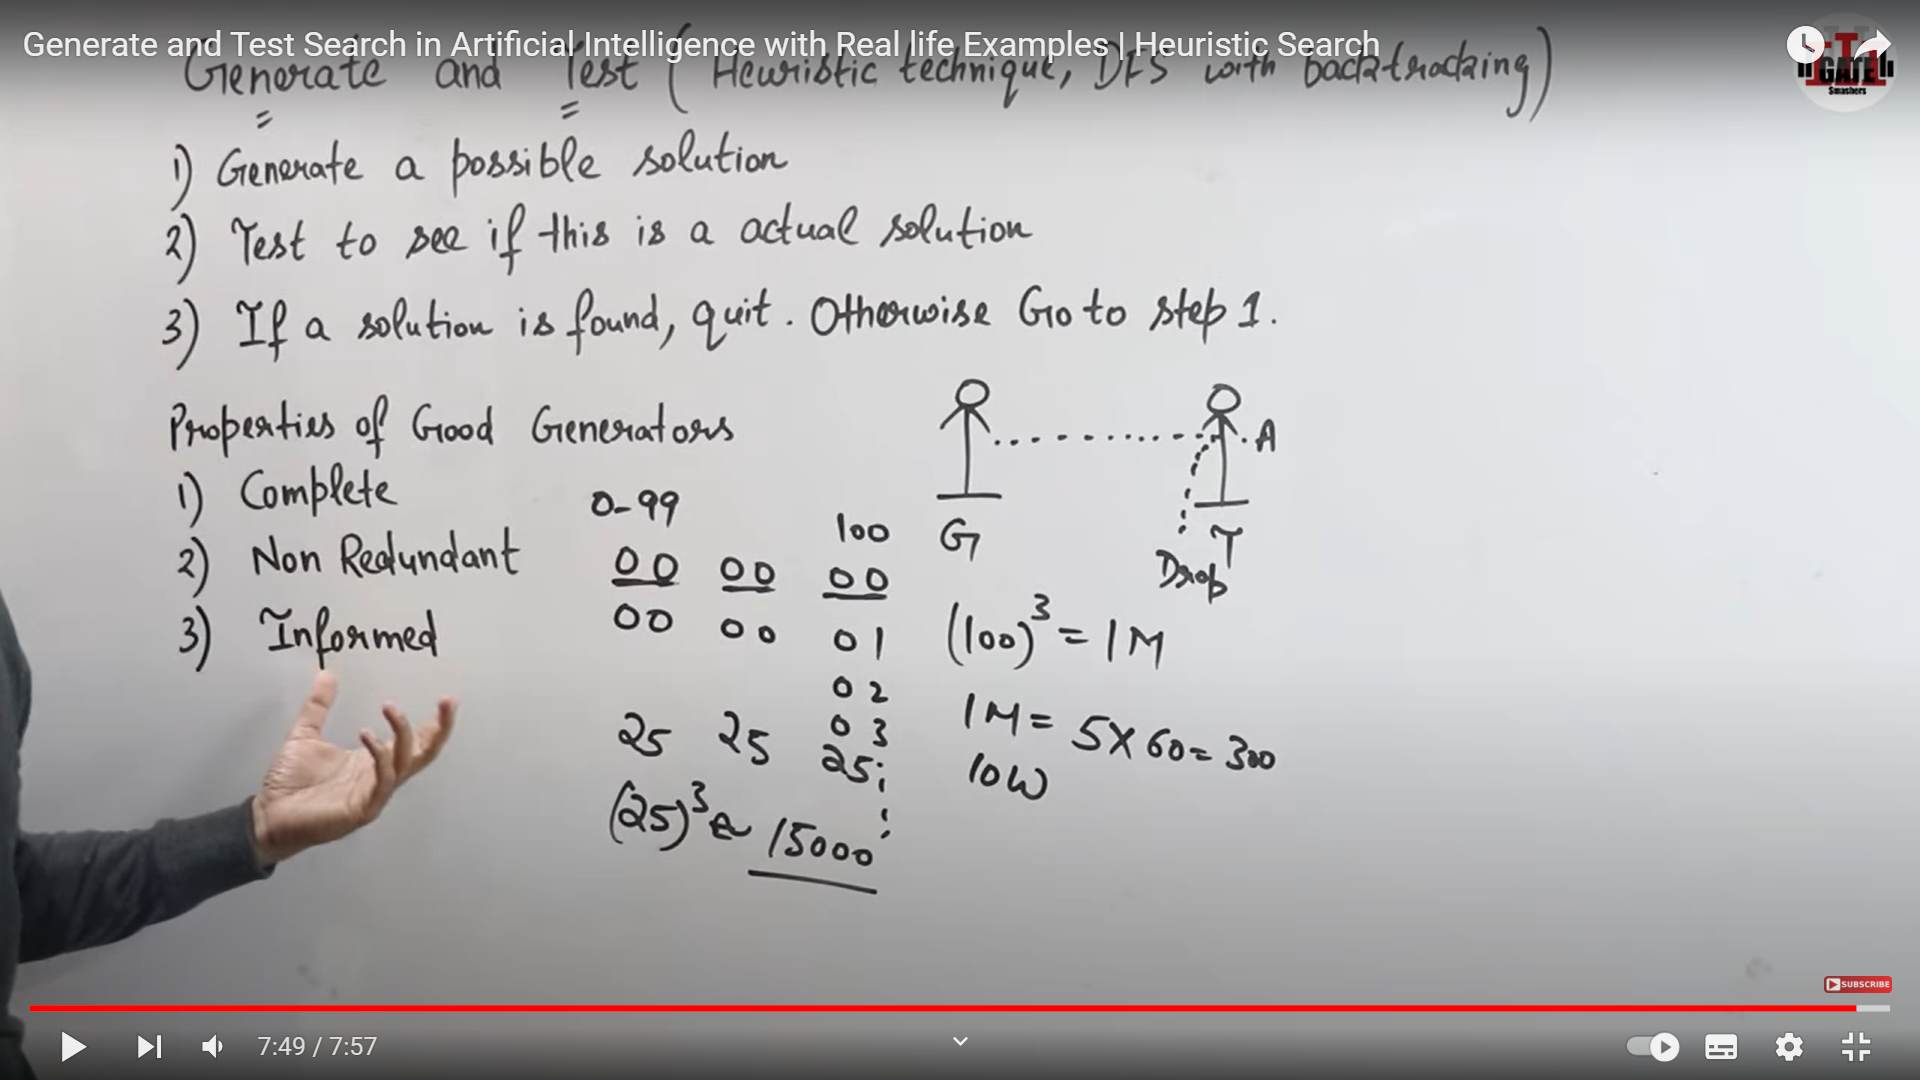 Generate and Test Search in Artificial Intelligence with Real life Examples | Heuristic Search
Generate and Test (Heuristic technique, DFS with backtracking)
1) Generate a possible solution
2) Test to see if this is a actual solution
3) If a solution is found, quit. Otherwise Go to step 1.
Properties of Good Generators
1) Complete
2) Non Redundant
3) Informed
0-99
100
00 00 00
00 00 01
02
03
25 25 25
(25)³ ≈ 15000
G
T
A
Drop
(100)³ = 1M
1M = 5X60=300
10W
GATE
Smashers
SUBSCRIBE
7:49 / 7:57